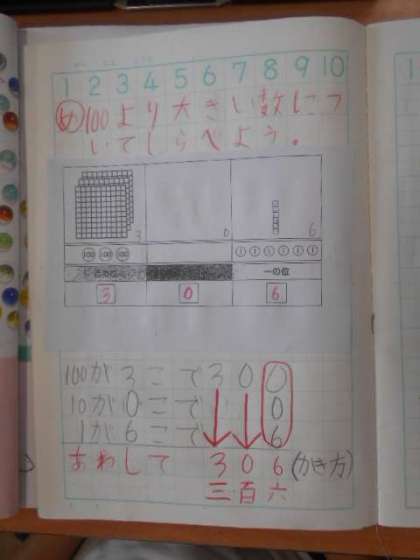 1 2 3 4 5 6 7 8 9 10
め 100より大きい数につ
いてしらべよう。
3 0 6
100 100 100 1 1 1 1 1 1
一の位
3 0 6
100が3こで300
10が0こで 0
1が6こで 6
あわして 306(かき方)
三百六